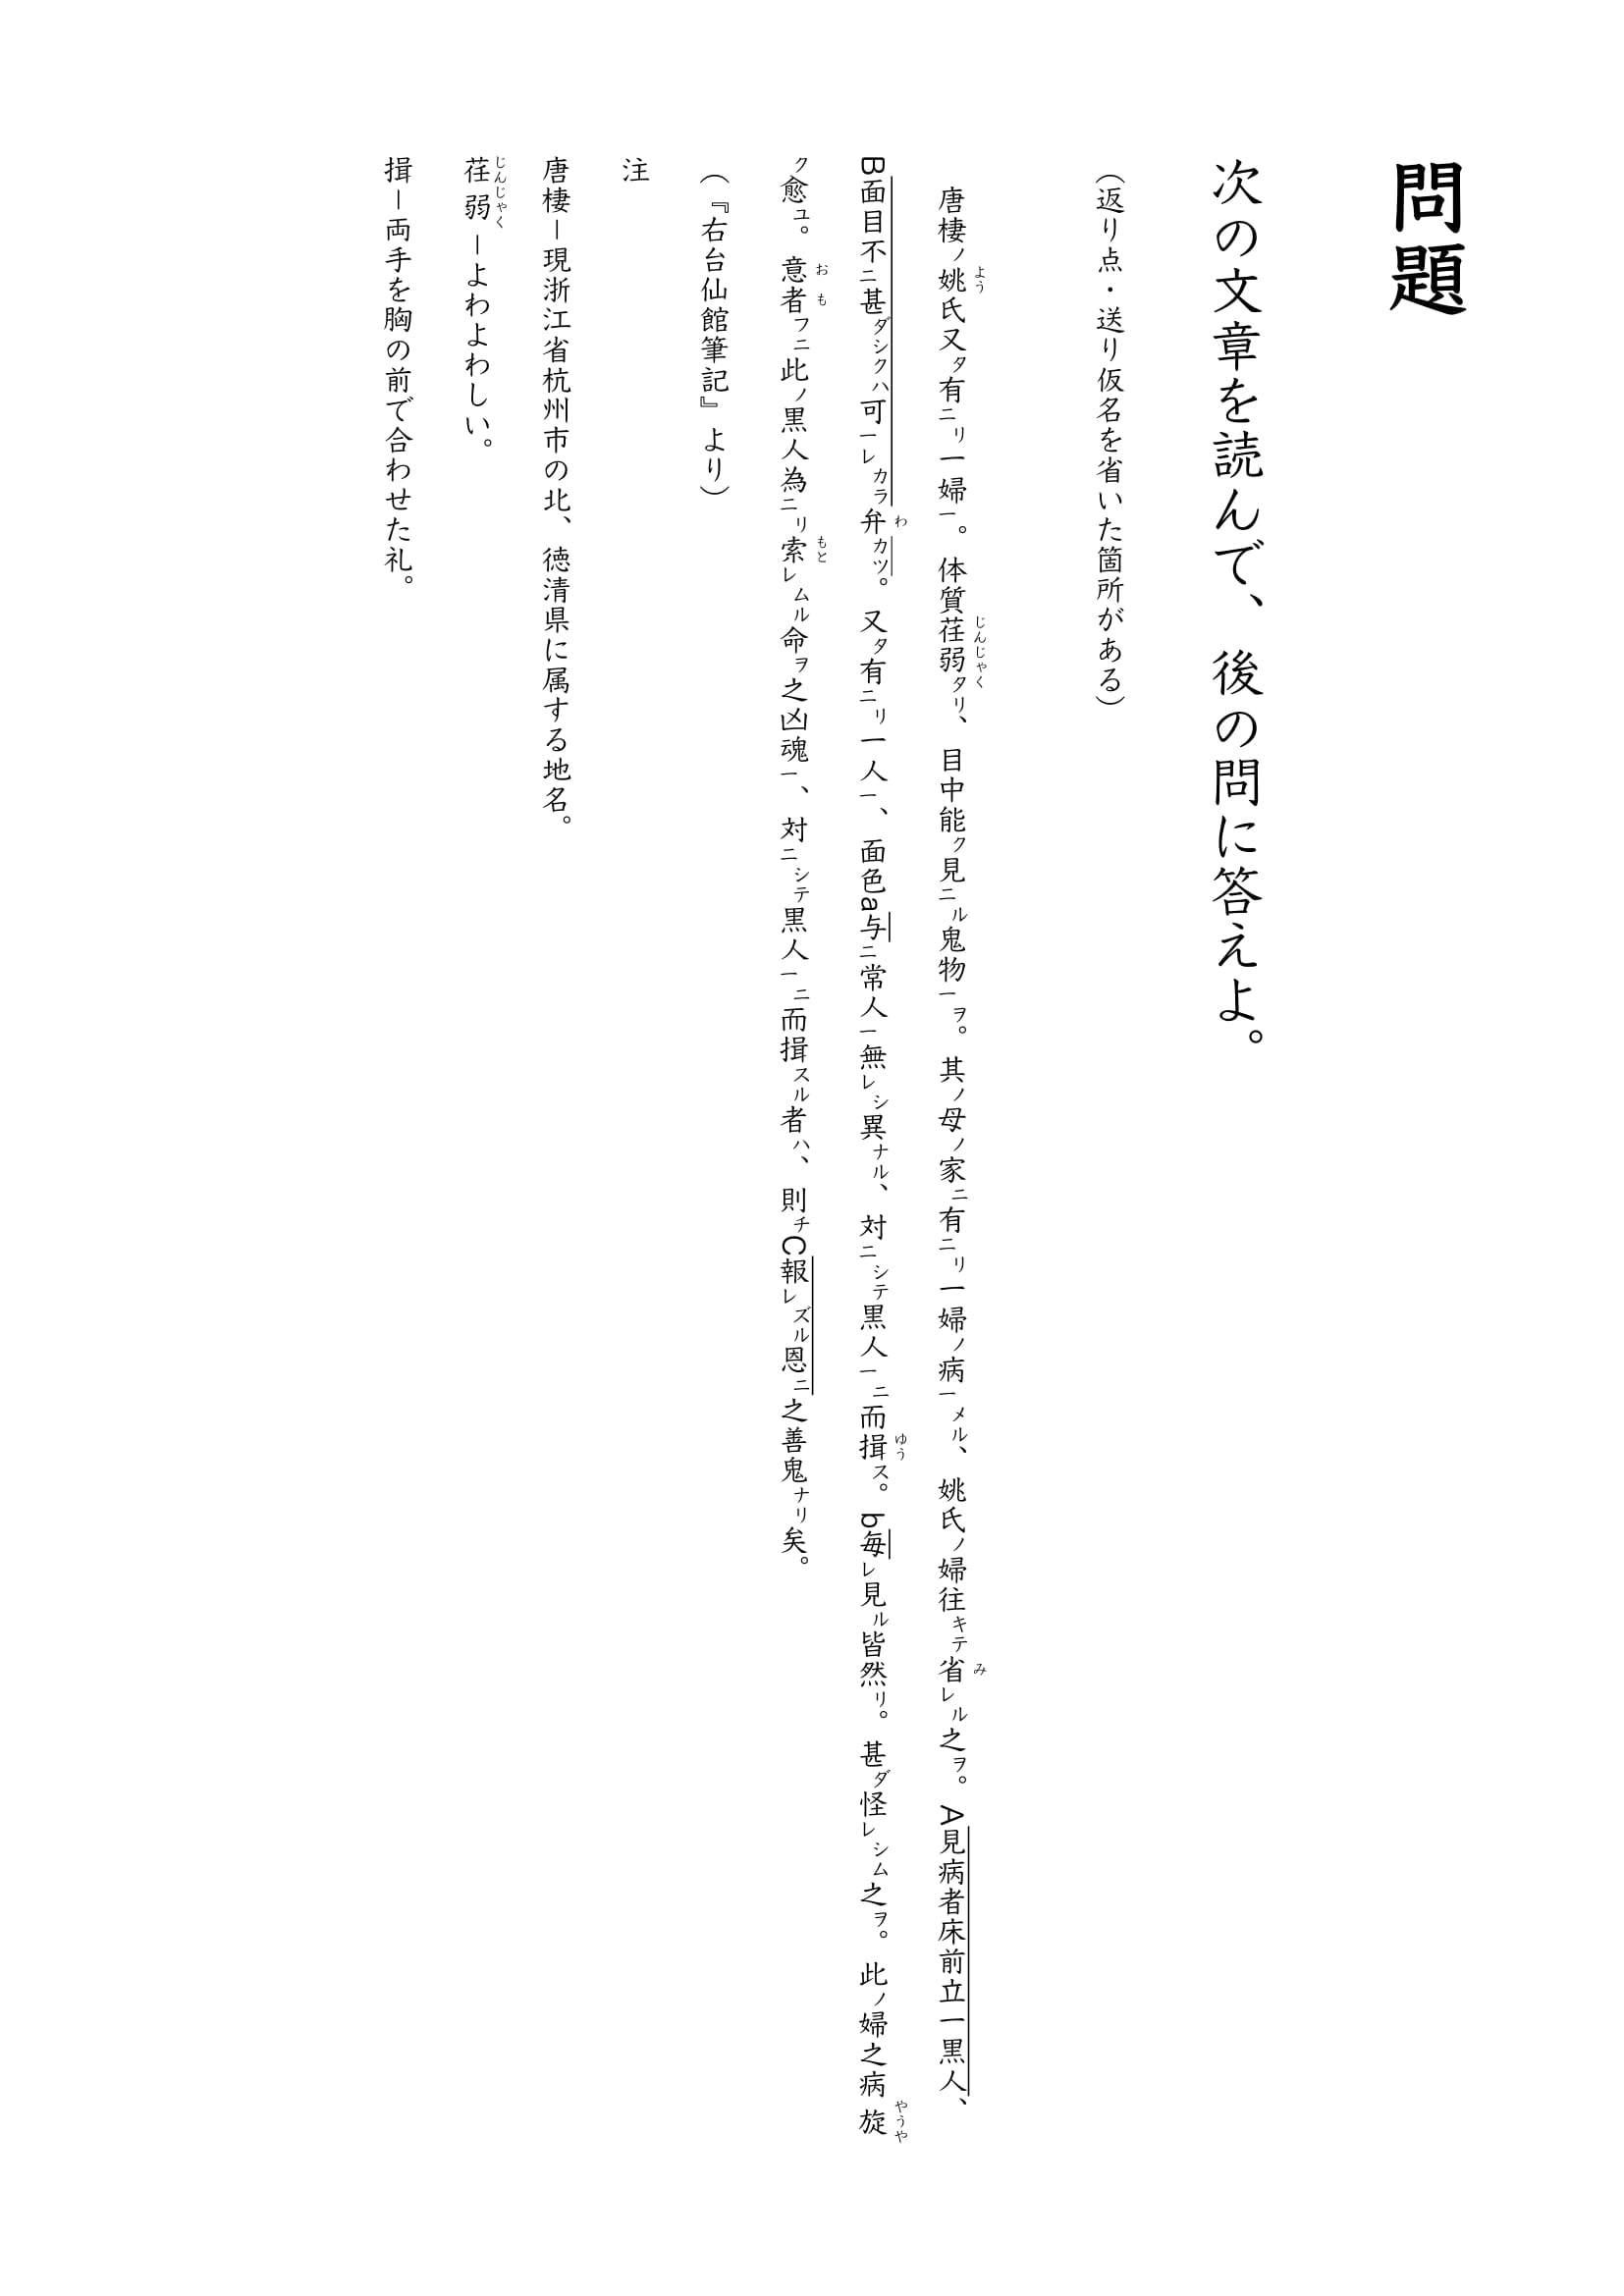 問題
次の文章を読んで、後の問に答えよ。
（返り点・送り仮名を省いた箇所がある）
唐棲ノ姚よう氏又タ有二リ一婦一。体質荏弱じんじゃくタリ、目中能ク見二ル鬼物一ヲ。其ノ母ノ家ニ有二リ一婦ノ病一メル、姚氏ノ婦往キテ省みレル之ヲ。A見病者床前立一黒人、
B面目不二甚ダシクハ可一レカラ弁わカツ。又タ有二リ一人一、面色a与二常人一無レシ異ナル、対二シテ黒人一ニ而揖ゆうス。b毎レ見ル皆然リ。甚ダ怪レシム之ヲ。此ノ婦之病旋やうや
ク愈ユ。意お者もフニ此ノ黒人為二リ索もとレムル命ヲ之凶魂一、対二シテ黒人一ニ而揖スル者ハ、則チC報レズル恩ニ之善鬼ナリ矣。
（『右台仙館筆記』より）
注
唐棲－現浙江省杭州市の北、徳清県に属する地名。
荏弱じんじゃく－よわよわしい。
揖－両手を胸の前で合わせた礼。